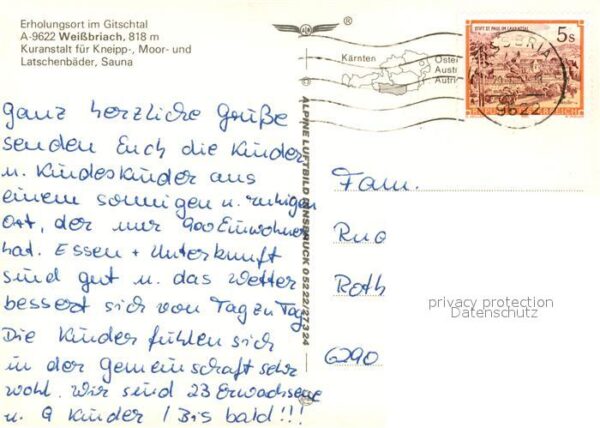 Erholungsort im Gitschtal
A-9622 Weißbriach, 818 m
Kuranstalt für Kneipp-, Moor- und
Latschenbäder, Sauna
ganz herzliche Grüße
senden Euch die Kinder
u. Kindeskinder aus
einem sonnigen u. ruhigen
Ort, der nur 900 Einwohner
hat. Essen + Unterkunft
sind gut u. das Wetter
bessert sich von Tag zu Tag
Die Kinder fühlen sich
in der Gemeinschaft sehr
wohl. Wir sind 23 Erwachsene
u. 9 Kinder / Bis bald!!!
®
© ALPINE LUFTBILD INNSBRUCK 05222/27324
Kärnten
Öster
Austr
Autri
STIFT ST. PAUL IM LAVANTTAL
5s
SSBRIA
9622
REPUBLIK ÖSTERREICH
Fam.
Roth
6290
privacy protection
Datenschutz